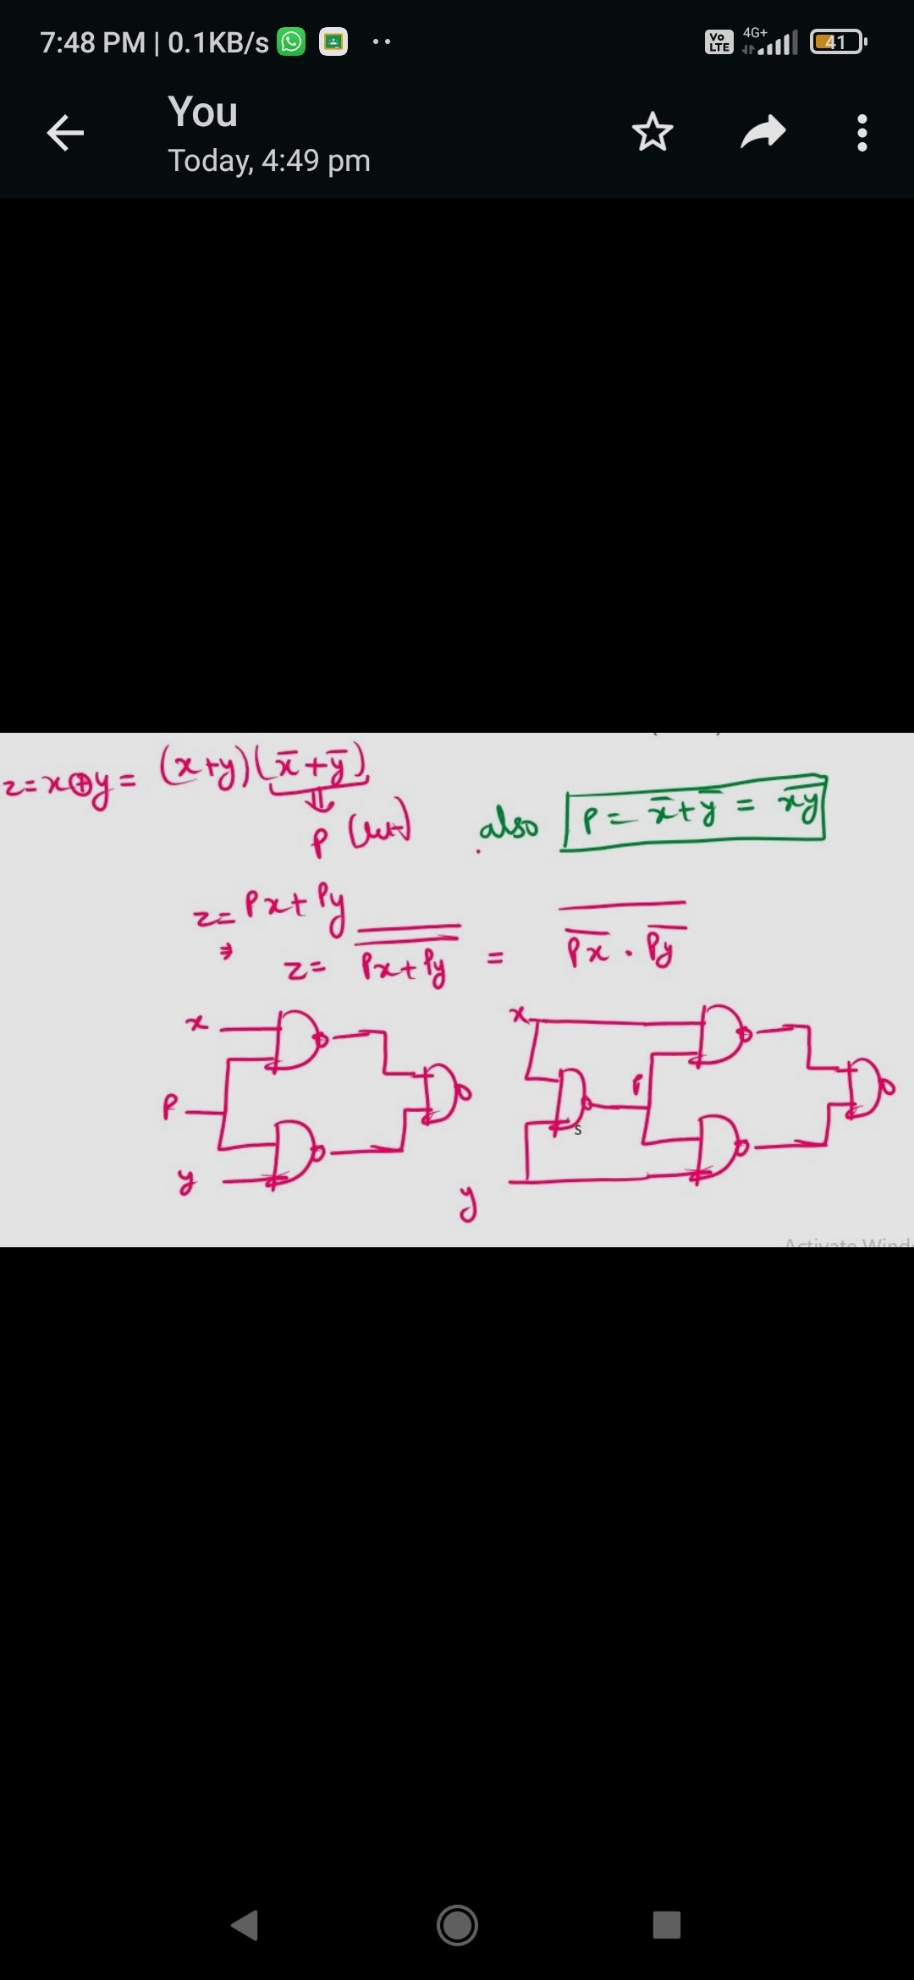 7:48 PM | 0.1KB/s
Vo LTE 4G+ 41
You
Today, 4:49 pm
z=x⊕y= (x+y)(x̄+ȳ)
⇓
P (let) also P = x̄+ȳ = \overline{xy}
z= Px+Py
⇒ z= \overline{\overline{Px+Py}} = \overline{\overline{Px} . \overline{Py}}
x x
P P
s
y y